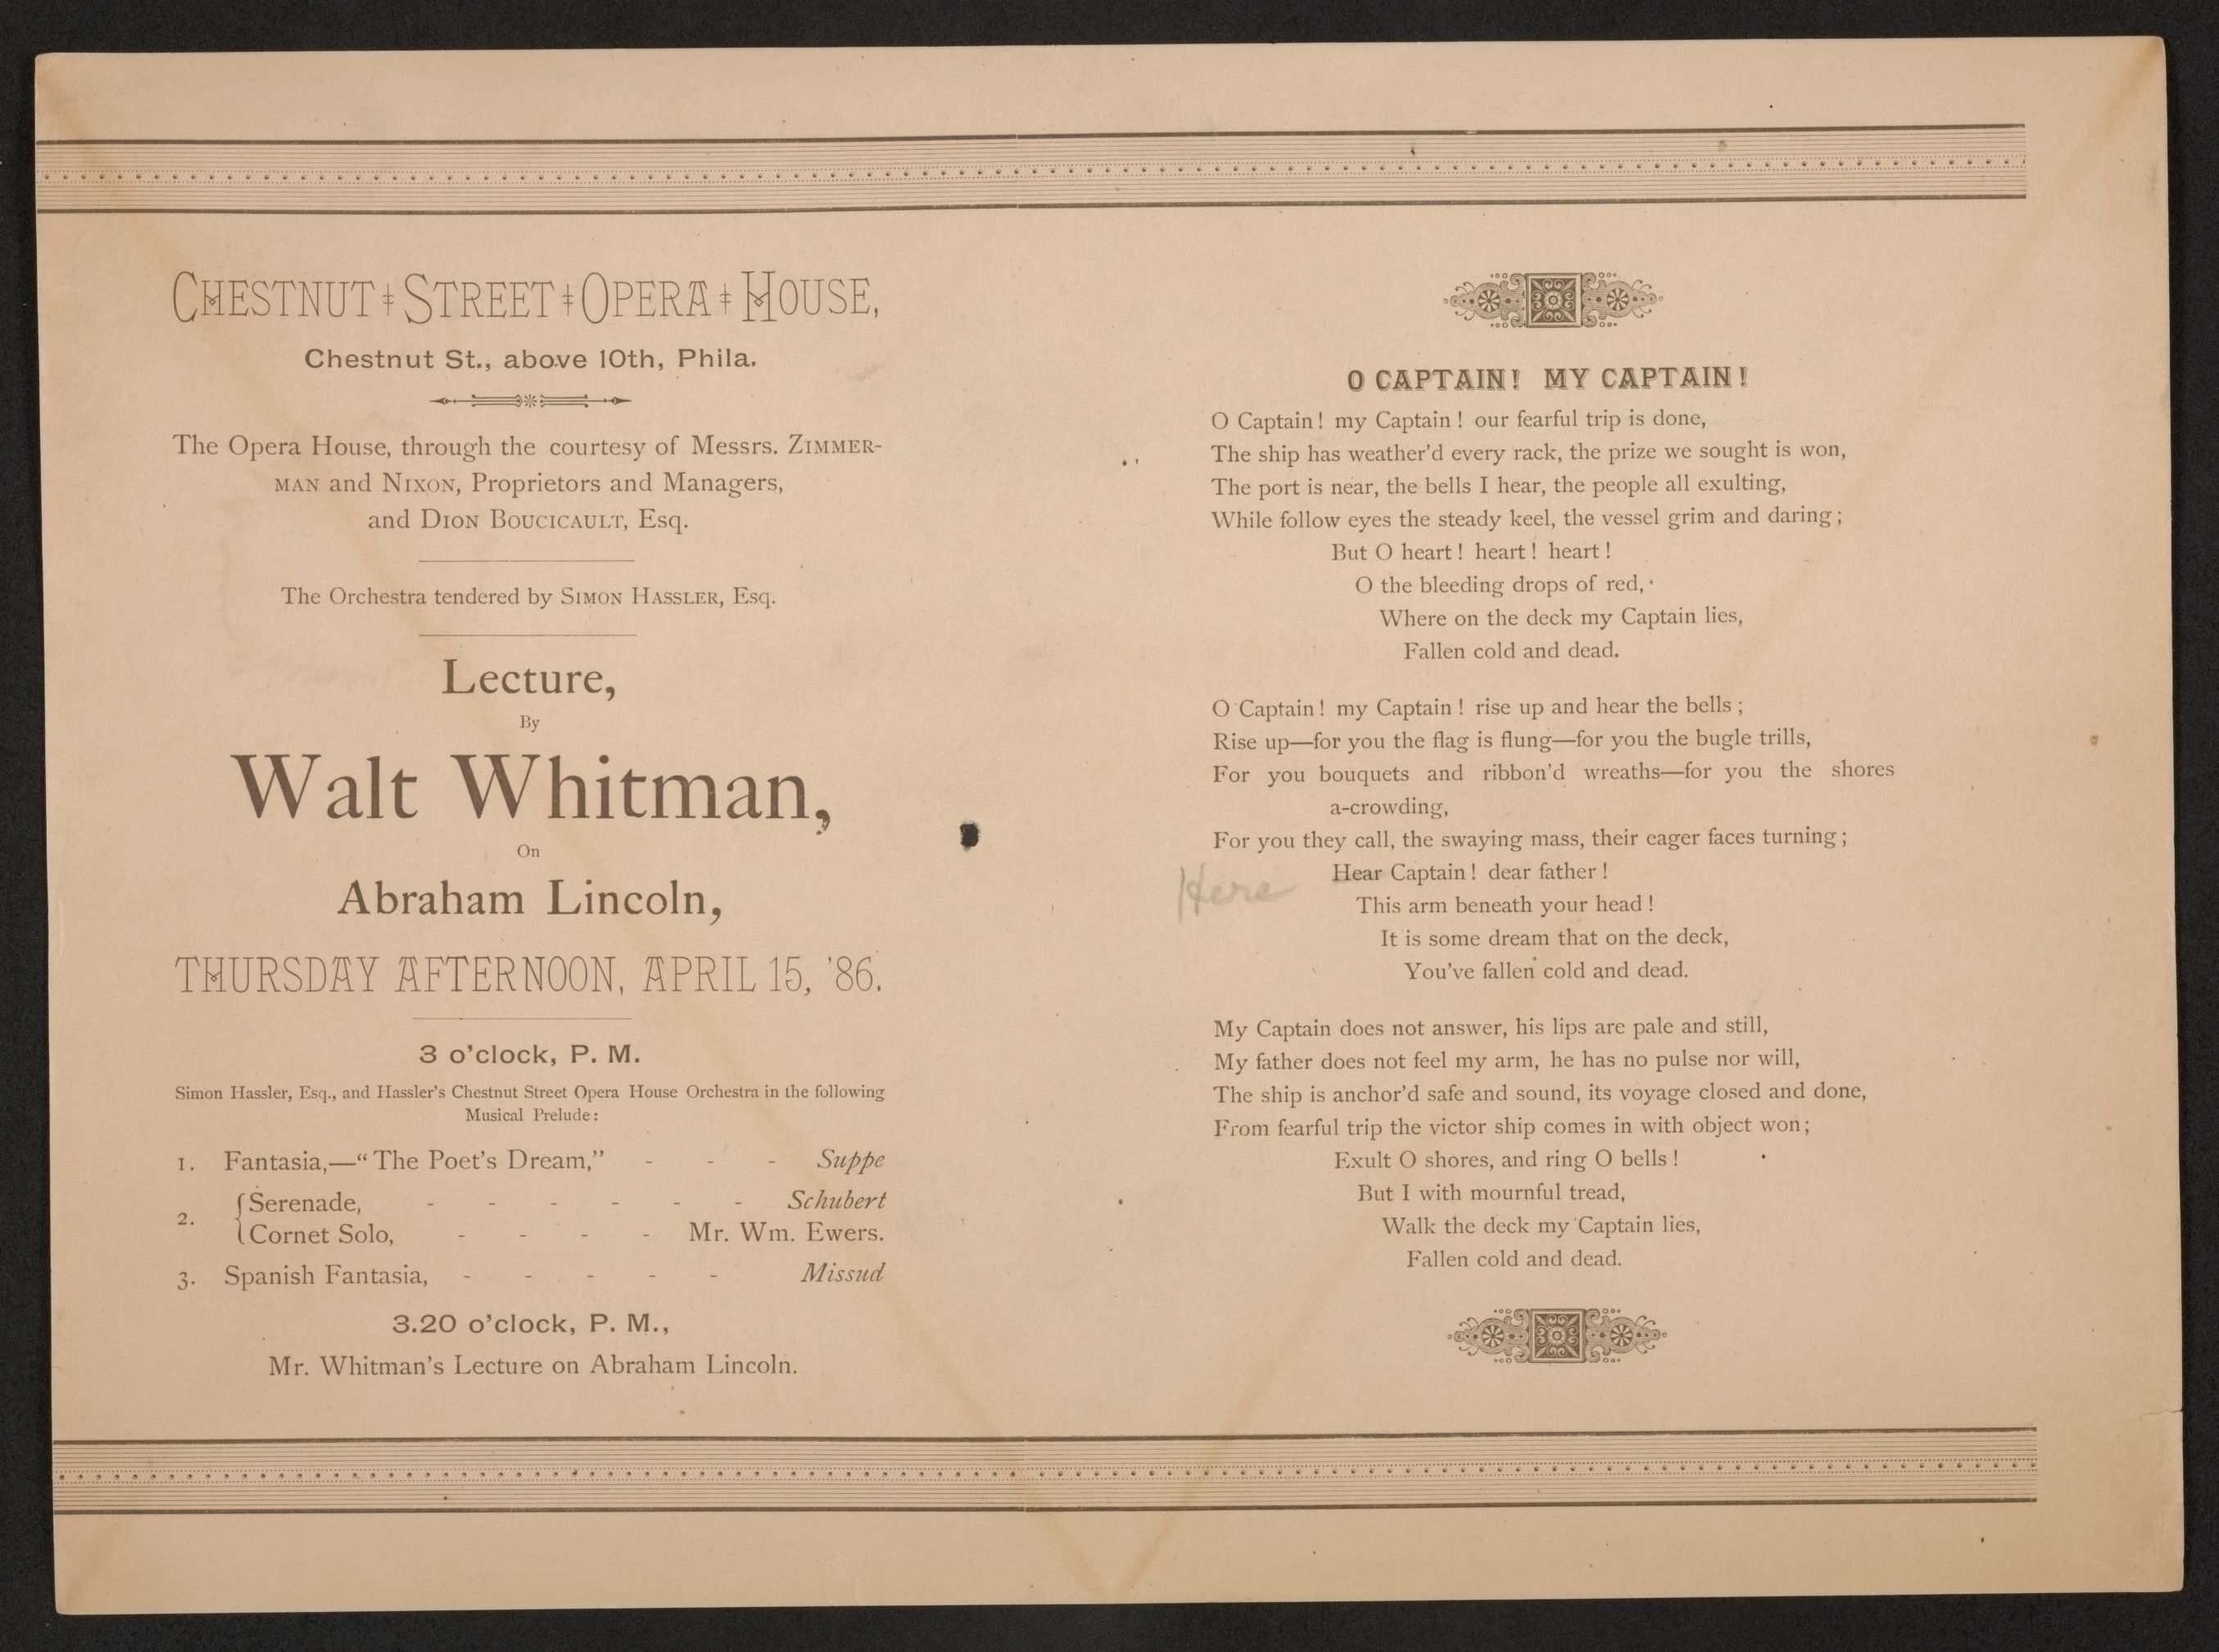 CHESTNUT STREET OPERA HOUSE,
Chestnut St., above 10th, Phila.
The Opera House, through the courtesy of Messrs. ZIMMER-
MAN and NIXON, Proprietors and Managers,
and DION BOUCICAULT, Esq.
The Orchestra tendered by SIMON HASSLER, Esq.
Lecture,
By
Walt Whitman,
On
Abraham Lincoln,
THURSDAY AFTERNOON, APRIL 15, '86.
3 o'clock, P. M.
Simon Hassler, Esq., and Hassler's Chestnut Street Opera House Orchestra in the following
Musical Prelude:
1. Fantasia,—“The Poet's Dream,” - - - Suppe
2. { Serenade, - - - - - - Schubert
Cornet Solo, - - - - Mr. Wm. Ewers.
3. Spanish Fantasia, - - - - - Missud
3.20 o'clock, P. M.,
Mr. Whitman's Lecture on Abraham Lincoln.
O CAPTAIN! MY CAPTAIN!
O Captain! my Captain! our fearful trip is done,
The ship has weather'd every rack, the prize we sought is won,
The port is near, the bells I hear, the people all exulting,
While follow eyes the steady keel, the vessel grim and daring;
But O heart! heart! heart!
O the bleeding drops of red,
Where on the deck my Captain lies,
Fallen cold and dead.
O Captain! my Captain! rise up and hear the bells;
Rise up—for you the flag is flung—for you the bugle trills,
For you bouquets and ribbon'd wreaths—for you the shores
a-crowding,
For you they call, the swaying mass, their eager faces turning;
Here Hear Captain! dear father!
This arm beneath your head!
It is some dream that on the deck,
You've fallen cold and dead.
My Captain does not answer, his lips are pale and still,
My father does not feel my arm, he has no pulse nor will,
The ship is anchor'd safe and sound, its voyage closed and done,
From fearful trip the victor ship comes in with object won;
Exult O shores, and ring O bells!
But I with mournful tread,
Walk the deck my Captain lies,
Fallen cold and dead.